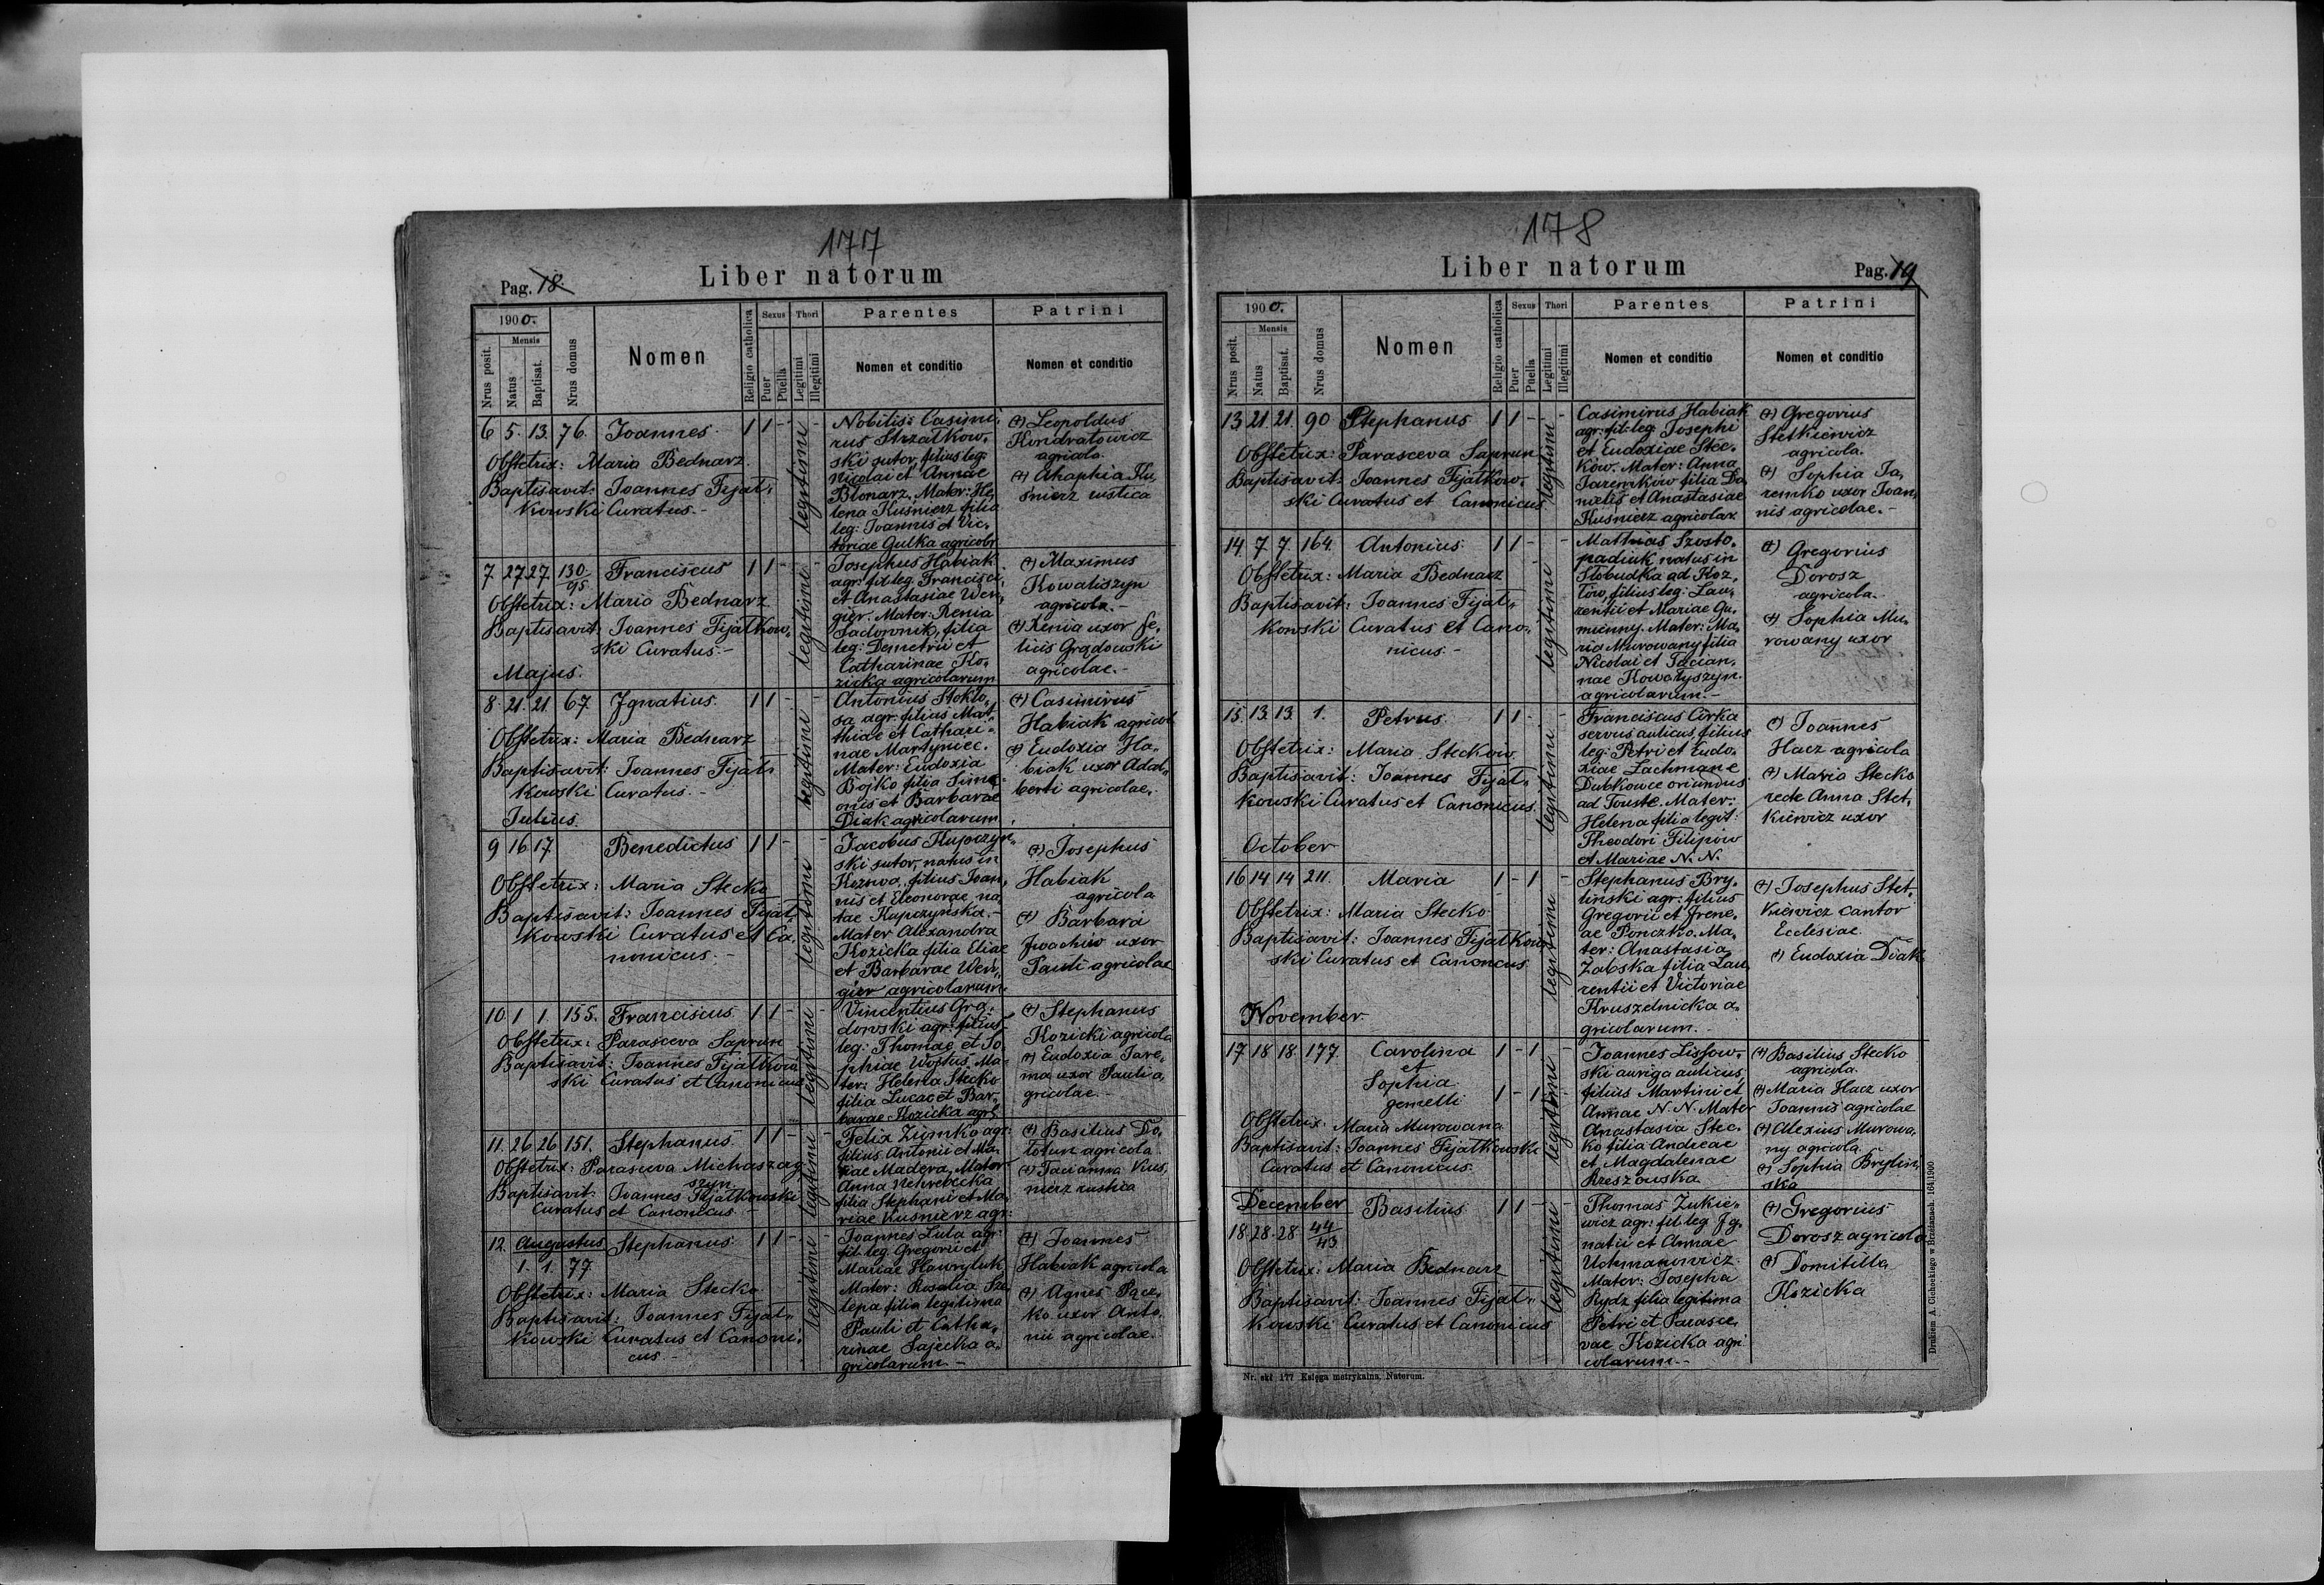 177
Pag. 18.
Liber natorum
1900.
Mensis
Nrus posit.
Natus
Baptisat.
Nrus domus
Nomen
Religio catholica
Sexus
Puer
Puella
Thori
Legitimi
Illegitimi
Parentes
Nomen et conditio
Patrini
Nomen et conditio
6 5. 13. 76. Joannes 1 1 - legitimi -
Obstetrix: Maria Bednarz
Baptisavit: Joannes Fijał-
kowski Curatus.-
Nobilis: Casimi-
rus Strzałkow-
ski sutor, filius leg:
Nicolai et Annae
Błonarz. Mater: He-
lena Kuśnierz filia
leg: Joannis et Vic-
toriae Gulka agricolar
(+) Leopoldus
Kondratowicz
agricola.
(+) Ahaphia Ku-
śnierz rustica
7 27 27 130/95 Franciscus 1 1 - legitimi -
Obstetrix: Maria Bednarz
Baptisavit: Joannes Fijałkow-
ski Curatus.-
Majus.
Josephus Habiak
agr: fil: leg. Francisci
et Anastasiae Wen-
gier. Mater: Xenia
Sadownik, filia
leg: Demetrii et
Catharinae Ko-
zicka agricolarum
(+) Maximus
Kowaliszyn
agricola.-
(+) Xenia uxor Fe-
licis Grądowski
agricolae.-
8. 21. 21. 67 Ignatius. 1 1 - legitimi -
Obstetrix: Maria Bednarz
Baptisavit: Joannes Fijał-
kowski Curatus.-
Julius.
Antonius Stokło-
sa agr: filius Mat-
thiae et Cathari-
nae Martyniec.
Mater: Eudoxia
Bojko filia Sime-
onis et Barbarae
Diak agricolarum
(+) Casimirus
Habiak agricol
(+) Eudoxia Ha-
biak uxor Adal-
berti agricolae.
9 16 17 Benedictus 1 1 - legitimi -
Obstetrix: Maria Stecko
Baptisavit: Joannes Fijał-
kowski Curatus et Ca-
nonicus.-
Jacobus Kupczyn-
ski sutor, natus in
Kozowa, filius Joan-
nis et Eleonorae na-
tae Kupczyńska.-
Mater Alexandra
Kozicka filia Eliae
et Barbarae Wen-
gier agricolarum.
(+) Josephus
Habiak
agricola
(+) Barbara
Iwachiw uxor
Pauli agricolae
10. 1 1. 155. Franciscus 1 1 - legitimi
Obstetrix: Parasceva Saprun
Baptisavit: Joannes Fijałkow-
ski Curatus et Canonicus
Vincentius Grą-
dowski agr: filius
leg: Thomae et So-
phiae Wojtus. Ma-
ter: Helena Stecko
filia Lucae et Bar-
barae Kozicka agr:
(+) Stephanus
Kozicki agricola
(+) Eudoxia Jare-
ma uxor Pauli a-
gricolae.-
11. 26. 26 151. Stephanus 1 1 - legitimi -
Obstetrix: Parasceva Michaszczy-
szyn.
Baptisavit: Joannes Fijałkowski
Curatus et Canonicus.-
Felix Zimko agr:
filius Antonii et Ma-
riae Madera, Mater
Anna Nehrebecka
filia Stephani et Ma-
riae Kuśnierz agr:
(+) Basilius Do-
lotun agricola.
(+) Tacianna Kus-
nierz rustica
12. Augustus Stephanus 1 1 - legitimi -
1. 1. 77
Obstetrix: Maria Stecko
Baptisavit: Joannes Fijał-
kowski Curatus et Canoni-
cus -
Joannes Lula agr:
fil: leg. Gregorii et
Mariae Hawryluk
Mater: Rosalia Sze-
lepa filia legitima
Pauli et Catha-
rinae Sajecka a-
gricolarum -
(+) Joannes
Habiak agricola
(+) Agnes Pącz-
ko uxor Anto-
nii agricolae.
178
Liber natorum
Pag. 19
1900.
Mensis
Nrus posit.
Natus
Baptisat.
Nrus domus
Nomen
Religio catholica
Sexus
Puer
Puella
Thori
Legitimi
Illegitimi
Parentes
Nomen et conditio
Patrini
Nomen et conditio
13 21. 21. 90 Stephanus 1 1 - legitimi -
Obstetrix: Parasceva Saprun
Baptisavit: Joannes Fijałkow-
ski Curatus et Canonicus
Casimirus Habiak
agr: fil: leg: Josephi
et Eudoxiae Stec-
ków. Mater: Anna
Jaremków filia Da-
nielis et Anastasiae
Kuśnierz agricolar
(+) Gregorius
Stetkiewicz
agricola.
(+) Sophia Ja-
remko uxor Joan-
nis agricolae.-
14. 7 7. 164. Antonius 1 1 - legitimi -
Obstetrix: Maria Bednarz
Baptisavit: Joannes Fijał-
kowski Curatus et Cano-
nicus.-
Matthias Szosto-
padiuk natus in
Słobudka ad Koz-
łów, filius leg: Lau-
rentii et Mariae Gu-
mienny. Mater: Ma-
ria Murowany filia
Nicolai et Tacian-
nae Kowałyszyn
agricolarum.-
(+) Gregorius
Dorosz
agricola.
(+) Sophia Mu-
rowany uxor
15. 13. 13. 1. Petrus 1 1 - legitimi -
Obstetrix: Maria Steckow
Baptisavit: Joannes Fijał-
kowski Curatus et Canonicus.
October
Franciscus Cirka
servus aulicus, filius
leg: Petri et Eudo-
xiae Lachman e
Dubkowce oriundus
ad Touste. Mater:
Helena filia legit:
Theodori Filipów
et Mariae N. N.
(+) Joannes
Hacz agricola
(+) Maria Stecko
recte Anna Stet-
kiewicz uxor
16 14 14 211. Maria 1 - 1 legitimi -
Obstetrix: Maria Stecko
Baptisavit: Joannes Fijałkow-
ski Curatus et Canonicus
November.
Stephanus Bry-
liński agr: filius
Gregorii et Irene-
ae Ponczko. Ma-
ter: Anastasia
Zabska filia Lau-
rentii et Victoriae
Kruszelnicka a-
gricolarum.-
(+) Josephus Stet-
kiewicz cantor
Ecclesiae.
(+) Eudoxia Diak
17. 18 18. 177. Carolina 1 - 1 - legitimi
et
Sophia
gemelli 1 - 1 -
Obstetrix: Maria Murowana
Baptisavit: Joannes Fijałkowski
Curatus et Canonicus.
Joannes Lissow-
ski auriga aulicus,
filius Martini et
Annae N. N. Mater
Anastasia Stec-
ko filia Andreae
et Magdalenae
Rzeszowska
(+) Basilius Stecko
agricola.
(+) Maria Hacz uxor
Joannis agricolae
(+) Alexius Murowa-
ny agricola.
(+) Sophia Brylin-
ska
December Basilius 1 1 - legitimi -
18. 28. 28 44/43
Obstetrix: Maria Bednarz
Baptisavit: Joannes Fijał-
kowski Curatus et Canonicus
Thomas Zukie-
wicz agr: fil: leg Ig-
natii et Annae
Uchmanowicz
Mater: Josepha
Rydz filia legitima
Petri et Parasce-
vae Kozicka agri
colarum.-
(+) Gregorius
Dorosz agricola
(+) Domitilla
Kozicka
Nr. skł. 177 Księga metrykalna, Natorum.
Drukiem A. Cichockiego w Brzeżanach. 164/1900